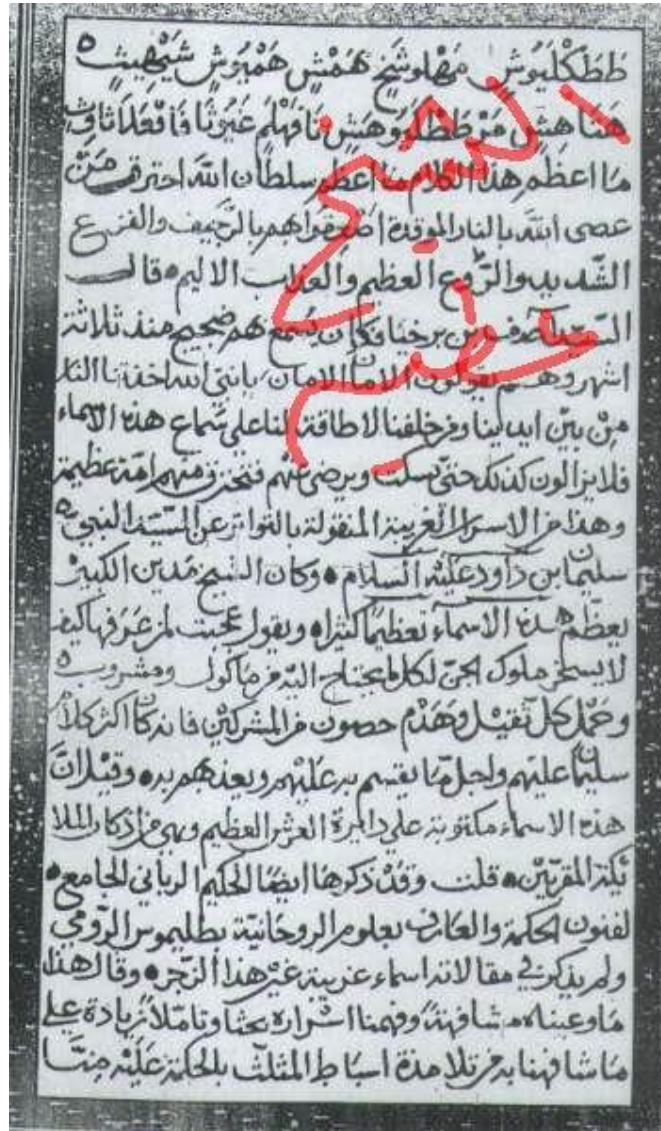 طَطَكْلَيُوشٍ مَهْلوشَيَخٍ هَمْشٍ هَمْبُوشٍ شَيْهِيثٍ ه
هَشَاهِشٍ مَرْطَطَلَعَوْهَشٍ نَافَهْلَمٍ غَيُوثَا فَافْعَلَاثَاوِثٍ
مَا اعظم هذا الكلام ما اعظم سلطان الله احترق مَنْ
عصى الله بالنار الموقدة اصْعَقوا هم بالرّجيف والفزع
الشّديد والرَّوع العظيم والعذاب الاليم ه قال
السّيد آصف بن برخيا فكان يُسْمَع لهم ضجيج منذ ثلاثة
اشهر وهم يقولون الامان الامان يا نبى الله اخذتنا النار
مِنْ بَيْن ايدينا ومن خلفنا لا طاقة لنا على سَماع هذه الاسماء
فلا يزالون كذلك حتّى يسكت ويرضى عنهم فتحترق منهم امّة عظيمة
وهذا من الاسرار الغريبة المنقولة بالتواتر عن السّيّد النبي ه
سليمان بن داود عَليْه السلام ه وكان الشيخ مَدين الكبيْر
يعظّم هذه الاسمآء تعظيمًا كثيرًا ه ويقول عجبت لمن عَرَفها كيف
لا يسخر ملوك الجنّ لكل ما يحتاج اليْه من ماكول ومشروب ه
وحَمْل كل ثقيْل وهَدْم حصون من المشركيْن فانه كان اكثر كلام
سليمان عليهم ولجل مّا يقسم به عليْهم ويعذبهم به ه وقيْل انَّ
هذه الاسماء مكتوبة علي دايرة العرش العظيم وهى من اذكار الملا
ئكة المقربّيْن ه قلت وقدْ ذكرهَا ايضًا الحكيم الرباني الجامع ه
لفنون الحكمة والعارف بعلوم الروحانيّة بطليموس الرّومي
ولم يذكر في مقالاته اسماء عزيبة غيْر هذا الزّجر ه وقال هذا
مَا وعيناه مشافهةً وفهمنا اسْراره بحثا وتامّلاً زيادة علي
مَا شافهنا به من تلامذة اسبَاط المثلث بالحكمة عَليْه منّا
الشيخ
نصير